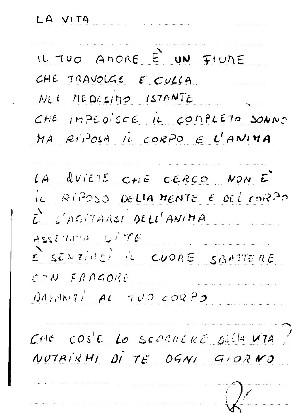 LA VITA
IL TUO AMORE È UN FIUME
CHE TRAVOLGE E CULLA
NEL MEDESIMO ISTANTE
CHE IMPEDISCE IL COMPLETO SONNO
MA RIPOSA IL CORPO E L'ANIMA
LA QUIETE CHE CERCO NON È
IL RIPOSO DELLA MENTE E DEL CORPO
È L'AGITARSI DELL'ANIMA
ASSETATA DI TE
È SENTIRSI IL CUORE SBATTERE
CON FRAGORE
DAVANTI AL TUO CORPO
CHE COS'È LO SCORRERE DELLA VITA?
NUTRIRMI DI TE OGNI GIORNO